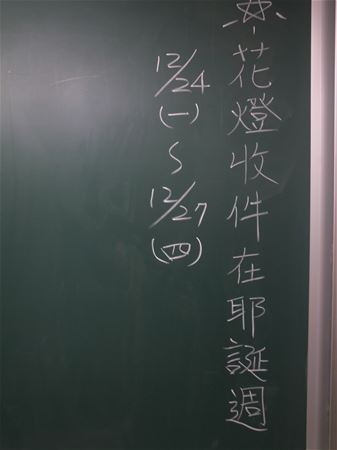 花燈收件在耶誕週
12/24(一)~12/27(四)